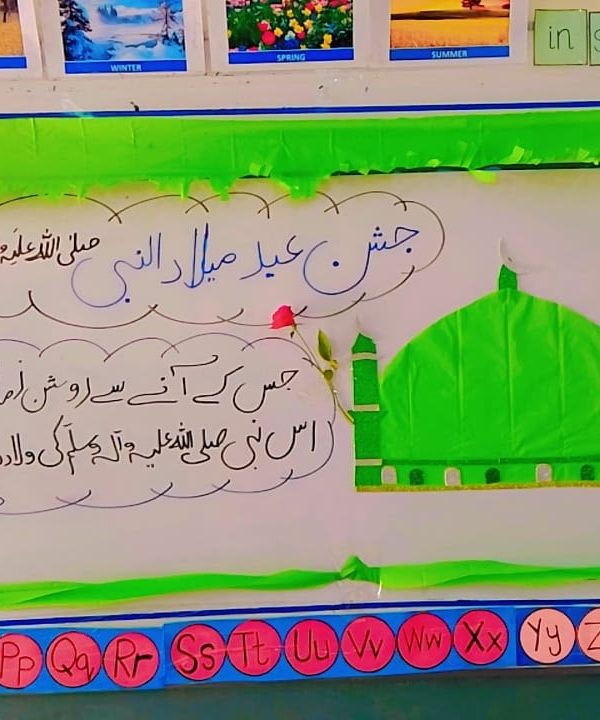 WINTER SPRING SUMMER
in
جشن عید میلاد النبی صلی اللہ علیہ
جس کے آنے سے روشن
اس نبی صلی اللہ علیہ وآلہ وسلم کی
Pp Qq Rr Ss Tt Uu Vv Ww Xx Yy Z